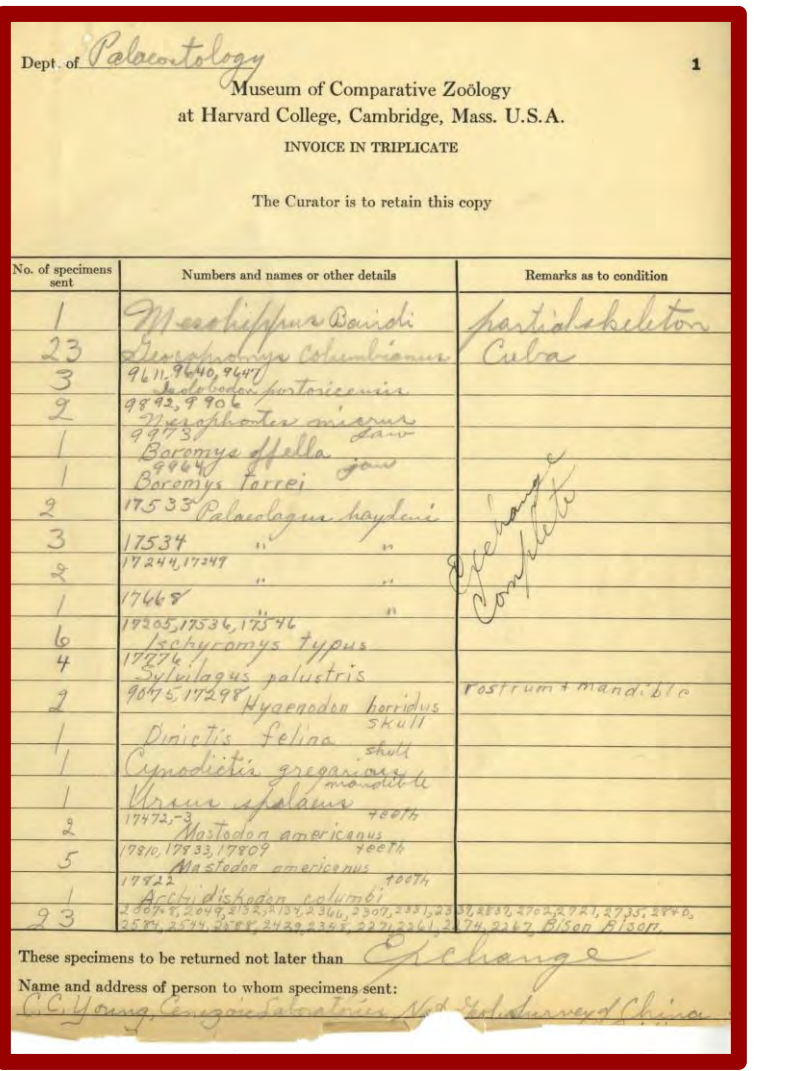 Dept. of Palaeontology
1
Museum of Comparative Zoölogy
at Harvard College, Cambridge, Mass. U.S.A.
INVOICE IN TRIPLICATE
The Curator is to retain this copy
No. of specimens sent Numbers and names or other details Remarks as to condition
1 Mesohippus Bairdi partial skeleton
23 Geocapromys Columbianus Cuba
3 9611, 9640, 9647
Isolobodon portoricensis
2 9892, 9906
Nesophontes micrus
9973 jaw
1 Boromys offella
9964 jaw
1 Boromys torrei
2 17533 Palaeolagus haydeni
3 17534 " "
17244, 17249
2 " "
1 17668 " "
17205, 17536, 17546
6 Ischyromys typus
4 17776
Sylvilagus palustris
2 9075, 17298 Hyaenodon horridus rostrum + mandible
skull
1 Dinictis felina
skull
1 Cynodictis gregarious
mandible
1 Ursus spelaeus
17472,-3 teeth
2 Mastodon americanus
17810, 17833, 17809 teeth
5 Mastodon americanus
17822 tooth
1 Archidiskodon columbi
23 2049, 2132, 2134, 2366, 2307, 2331, 2702, 2721, 2735, 2840,
2584, 2544, 2588, 2429, 2348, 2271, 2261, 2174, 2267, Bison Bison.
Exchange
Complete
These specimens to be returned not later than Exchange
Name and address of person to whom specimens sent:
C.C. Young, Cenozoic Laboratories, Nat. Geol. Survey of China